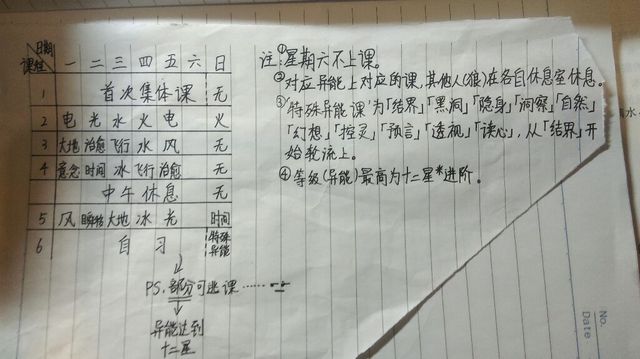 日期
课程
一 二 三 四 五 六 日
1 首次集体课 无
2 电 光 水 火 电 火
3 大地 治愈 飞行 水 风 无
4 意念 时间 冰 飞行 治愈 无
中午休息 无
5 风 瞬移 大地 冰 光 时间
6 自习 特殊异能
PS.部分可逃课……
异能达到
十二星
注①星期六不上课。
②对应异能上对应的课,其他人(狼)在各自休息室休息。
③特殊异能课为「结界」「黑洞」「隐身」「洞察」「自然」
「幻想」「控灵」「预言」「透视」「读心」,从「结界」开
始轮流上。
④等级(异能)最高为十二星*进阶。
No.
Date